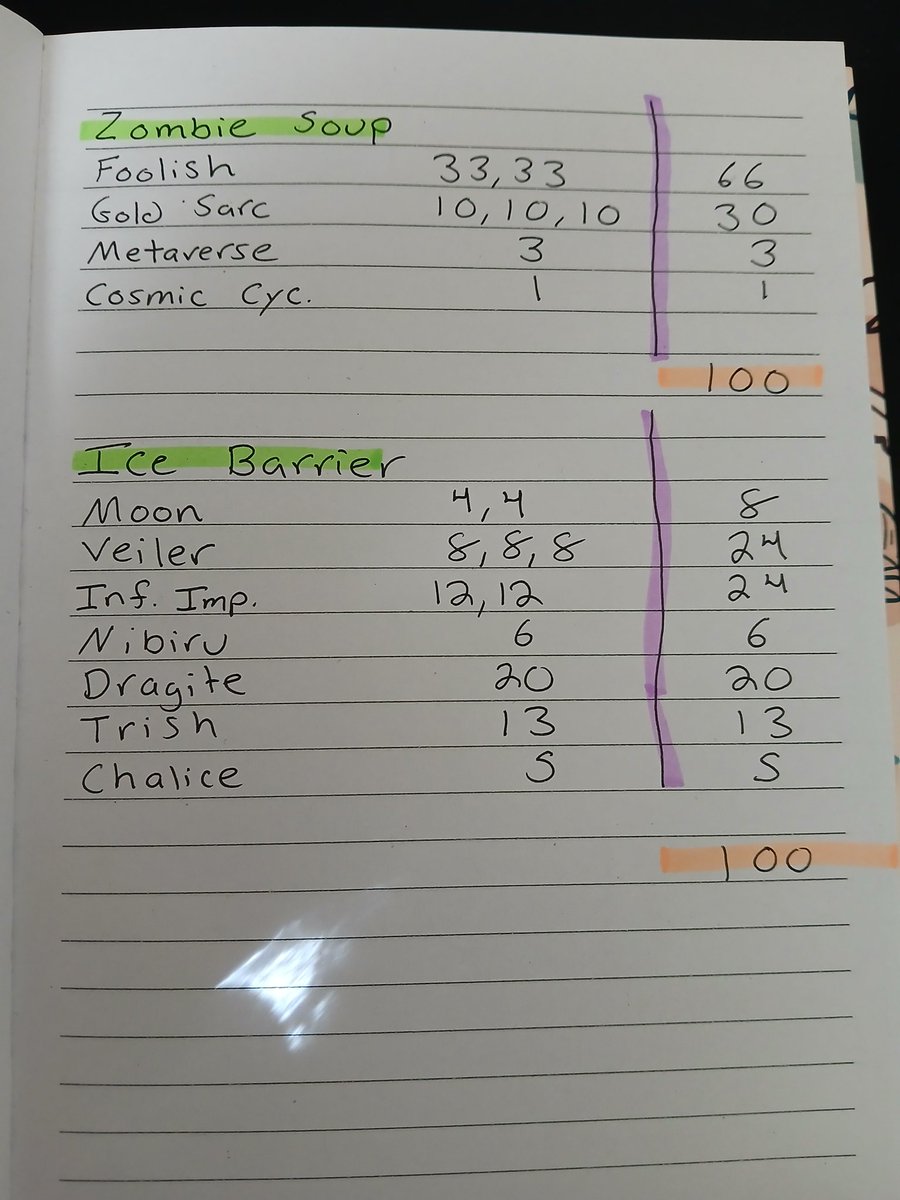 Zombie Soup
Foolish 33, 33 66
Gold Sarc 10, 10, 10 30
Metaverse 3 3
Cosmic Cyc. 1 1
100
Ice Barrier
Moon 4, 4 8
Veiler 8, 8, 8 24
Inf. Imp. 12, 12 24
Nibiru 6 6
Dragite 20 20
Trish 13 13
Chalice 5 5
100